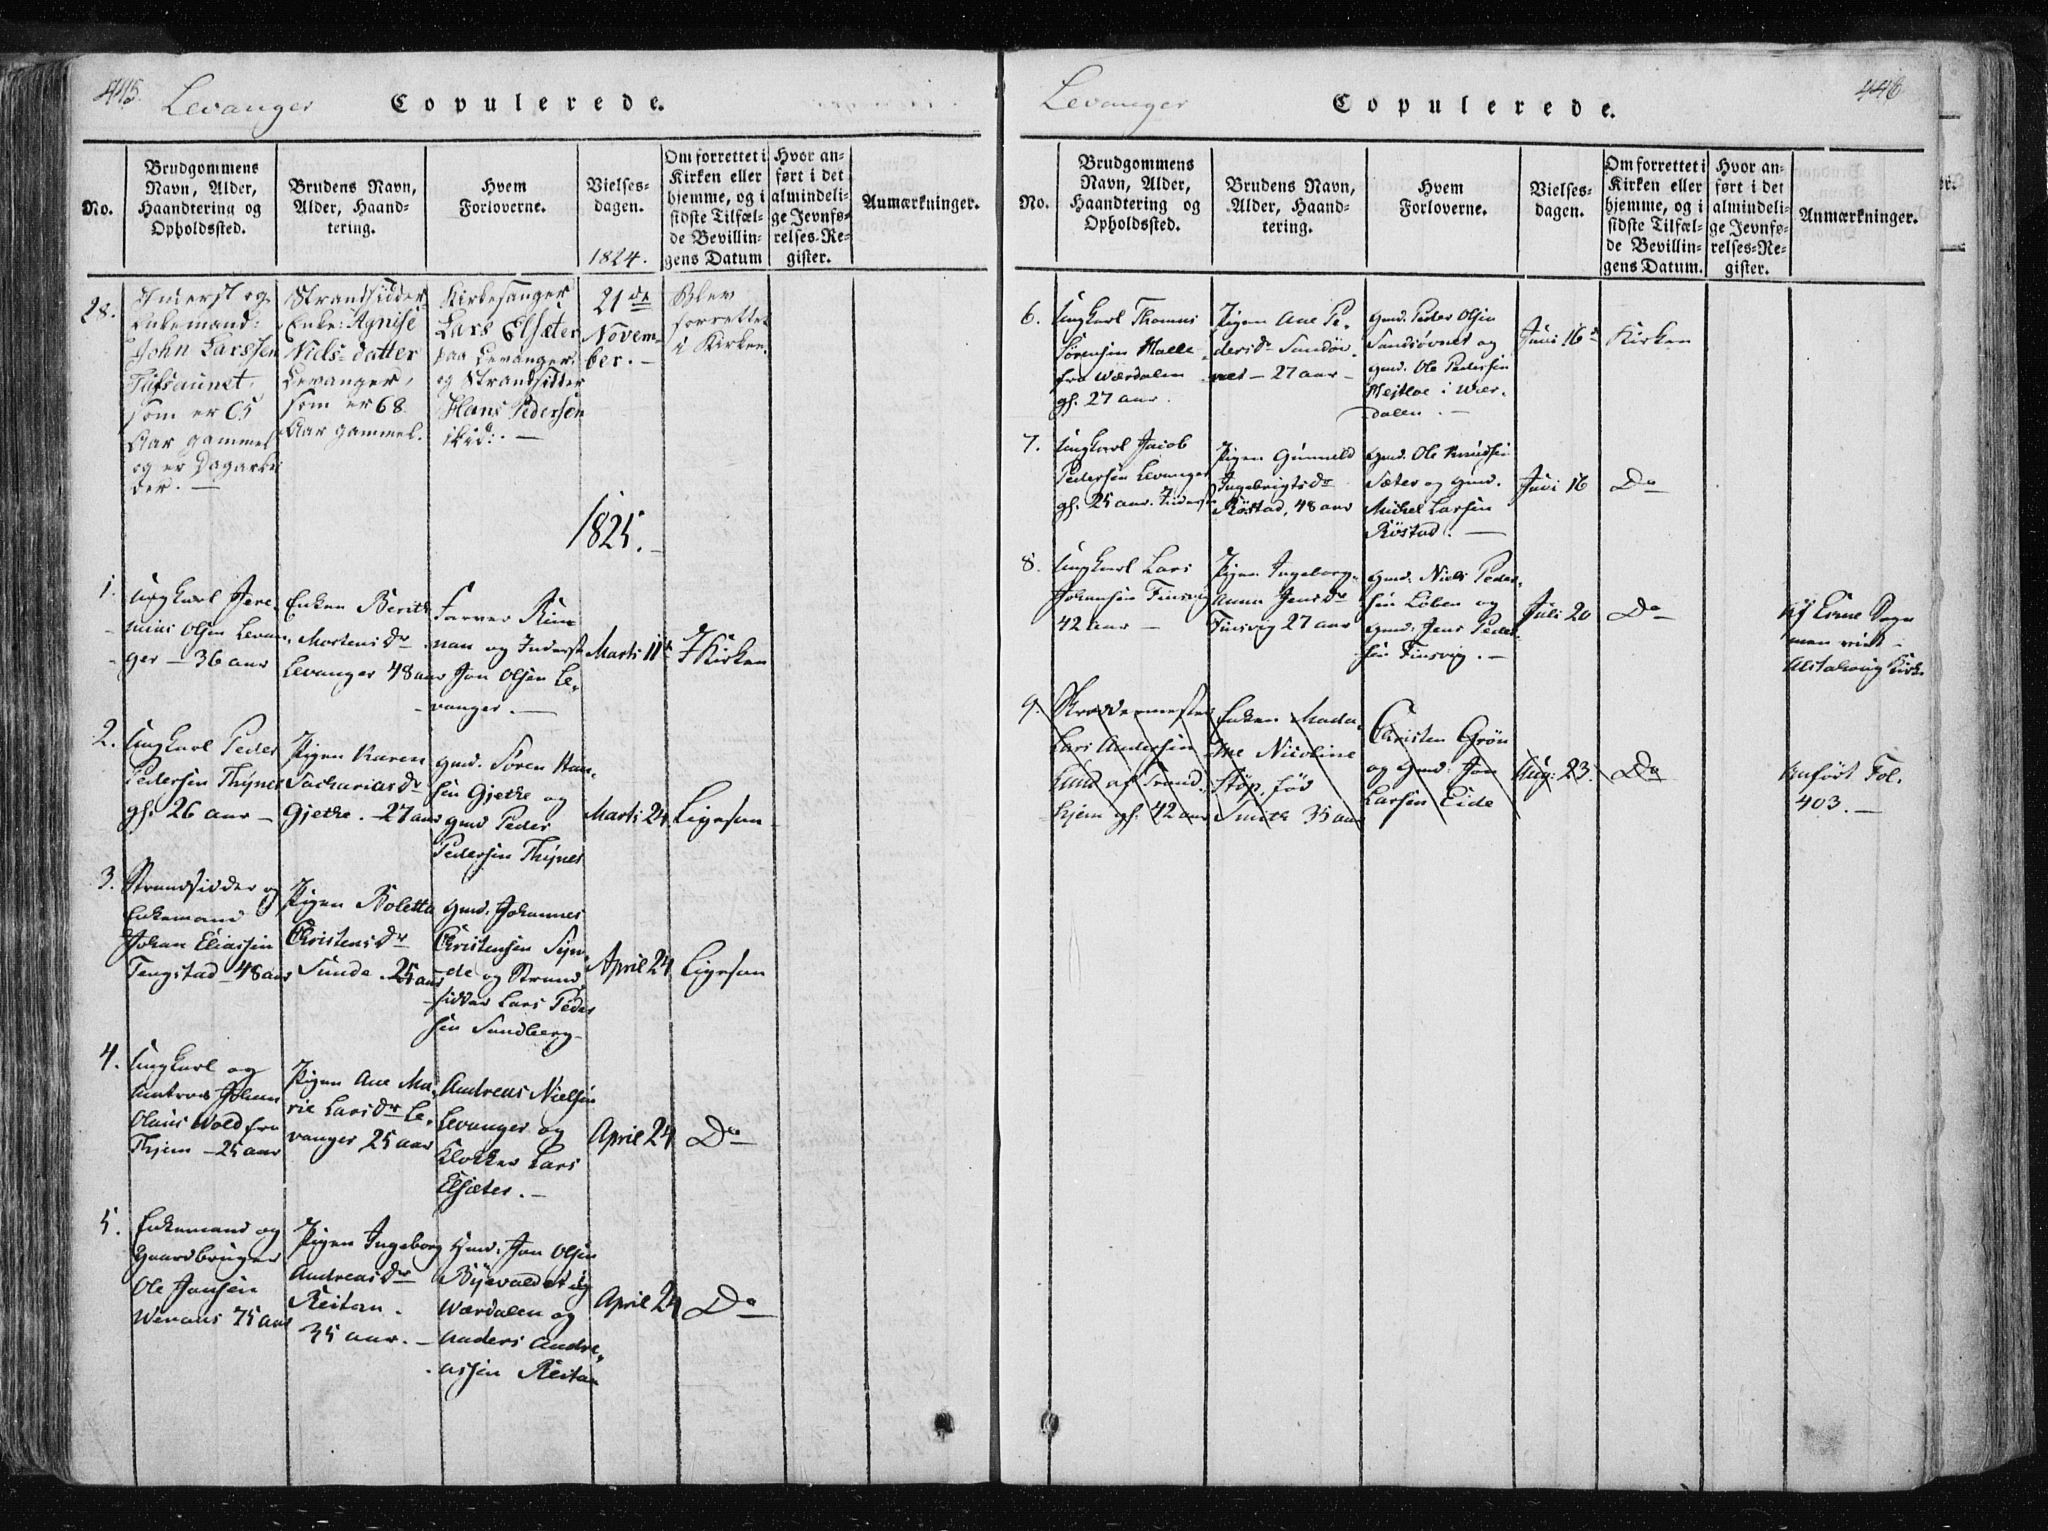 445.
Levanger
Copulerede.
No.
Brudgommens
Navn, Alder,
Haandtering og
Opholdssted.
Brudens Navn,
Alder, Haand-
tering.
Hvem
Forloverne.
Vielses-
dagen.
1824.
Om forrettet i
Kirken eller
hjemme, og i
sidste Tilfæl-
de Bevillin-
gens Datum
Hvor an-
ført i det
almindeli-
ge Jevnfø-
relses-Re-
gister.
Anmærkninger.
28.
Inderst og
Enkemand:
John Larssen
som er 65
Aar gammel
og er Dagarbei
der. —
Strandsidder
Enke: Agnise
Niels-datter
Levanger,
som er 68
Aar gammel.
Kirkesanger
Lars Elsæter
paa Levanger:
og Strandsidder
Hans Pedersen
ibid: —
21de
Novem-
ber. —
Blev
forrettet
i Kirken.
1825. —
1.
Ungkarl Jere-
mias Olsen Levan-
ger — 36 aar
Enken Berith
Mortensdr
Levanger 48 aar
Farver Rin
nan og Inderst
Jon Olsen Le-
vanger. —
Marts 11te
I Kirken
2.
Ungkarl Peder
Pedersen Thynes
gl. 26 aar —
Pigen Karen
Zachariasdr
Gjethe. - 27 aar
gmd. Søren Han-
sen Gjethe og
gmd Peder
Pedersen Thynes
Marts 24
Ligesaa
3.
Strandsidder og
Enkemand
Johan Eliassen
Tengstad - 48 aar
Pigen Boletta
Christensdr
Sunde. 25 aar
gmd. Johannes
Christensen Syn-
de og Strand-
sidder Lars Peder
sen Sundberg -
April 24
Ligesaa
4.
Ungkarl og
Johan
Olaus Wold fra
Thjem — 25 aar
Pigen Ane Ma-
rie Larsdr Le-
vanger 25 aar
Andreas Nielsen
Levanger og
Klokker Lars
Elsæter. —
April 24
Do
5.
Enkemand og
Gaardbruger
Ole Jonsen
Wenaus 75 aar
Pigen Ingeborg
Andreasdr
Reitan.
35 aar. —
Gmd. Jon Olsen
Byevaldet og
Værdalen og
Anders Andre-
assen Reitan
April 24
Do
446
Levanger
Copulerede.
No.
Brudgommens
Navn, Alder,
Haandtering og
Opholdssted.
Brudens Navn,
Alder, Haand-
tering.
Hvem
Forloverne.
Vielses-
dagen.
Om forrettet i
Kirken eller
hjemme, og i
sidste Tilfæl-
de Bevillin-
gens Datum.
Hvor an-
ført i det
almindeli-
ge Jevnfø-
relses-Re-
gister.
Anmærkninger.
6.
Ungkarl Thomas
Sørensen Halle
fra Værdalen
gl. 27 aar.
Pigen Ane Pe-
dersdr Sandøv-
net — 27 aar —
gmd. Peder Olsen
Sandøvnet og
gmd. Ole Pedersen
Hestloe i Vær-
dalen. —
Juni 16d
Kirken
7.
Ungkarl Jacob
Pedersen Levanger
gl. 25 aar. Inderst
Pigen Gunnild
Ingebrigtsdr
Röstad, 48 aar
gmd. Ole Knudsen
Sæter og gmd.
Mickel Larsen
Röstad. —
Juni 16
Do
8.
Ungkarl Lars
Johansen Finsvig
42 aar —
Pigen Ingeborg
Anna Jensdr
Finsvig 27 aar
gmd. Niels Peder-
sen Løben og
gmd: Jens Peder-
sen Finsvig. —
Juli 20
Do
Alstahoug Kirke
9.
Skræddermester
Lars Andersen
Lund af Trond-
hjem gl. 42 aar
Enken Mada-
me Nicoline
Støp, fød
Smith 35 aar
Christen Grön
og gmd. Jon
Larsen Eide
Aug: 23.
Do
Anført Fol.
403. —